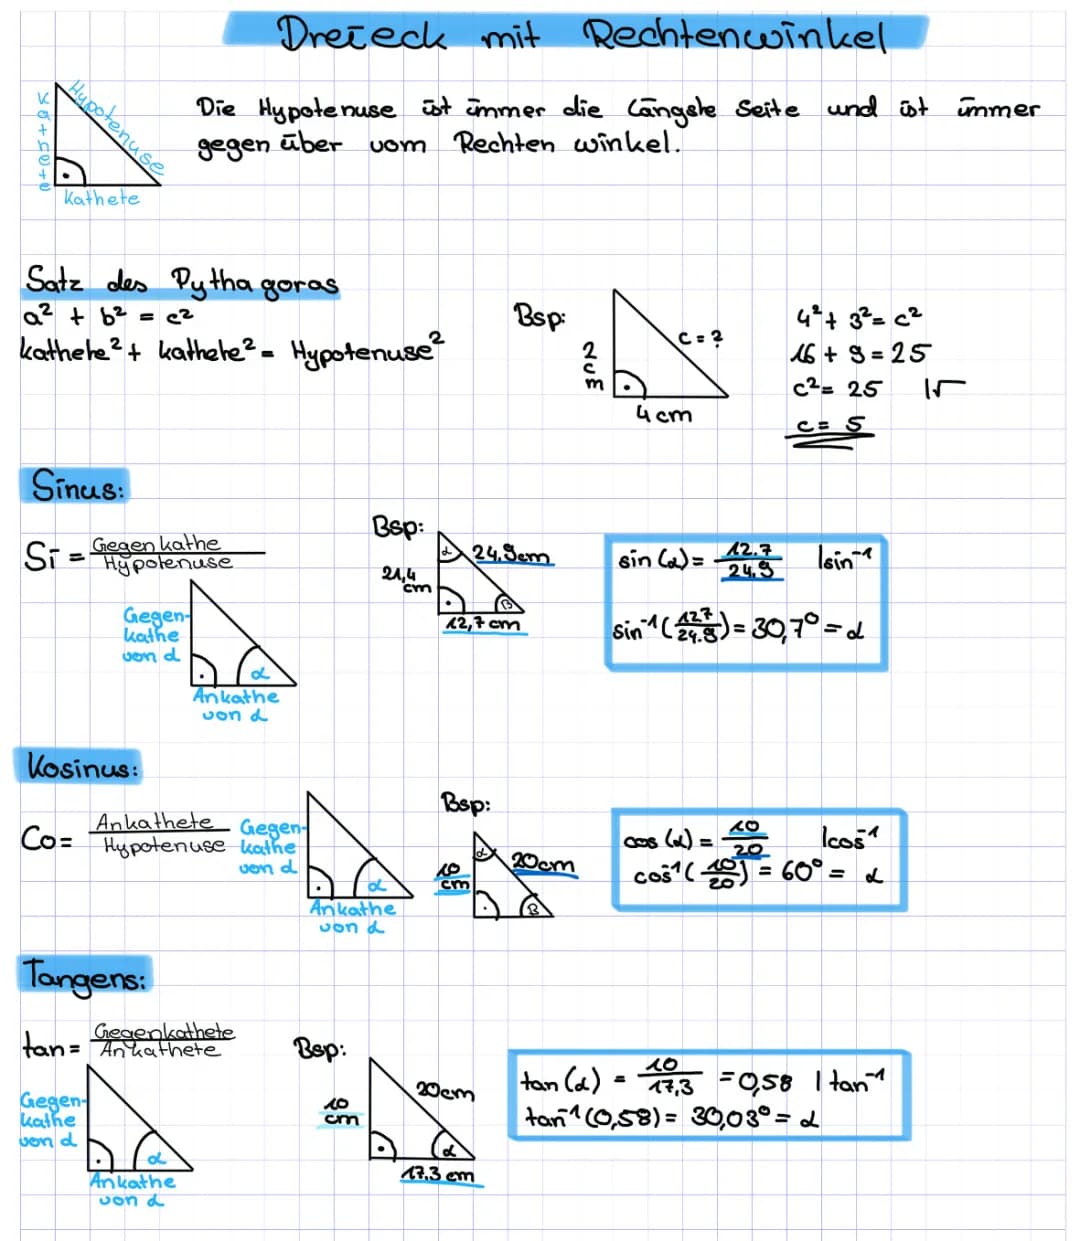 Dreieck mit Rechtenwinkel
Kathete
Hypotenuse
Kathete
Die Hypotenuse ist immer die Längste Seite und ist immer
gegen über vom Rechten winkel.
Satz des Pythagoras
a² + b² = c²
kathete² + kathete² = Hypotenuse²
Bsp:
2
c
m
c = ?
4 cm
4² + 3² = c²
16 + 9 = 25
c² = 25 |√
c = 5
Sinus:
Si = Gegenkathe
Hypotenuse
Gegen-
kathe
von α
α
Ankathe
von α
Bsp:
α
24,9cm
21,4
cm
B
12,7 cm
sin (α) = 12,7 |sin⁻¹
24,9
sin⁻¹ (127/24.9) = 30,7° = α
Kosinus:
Co = Ankathete
Hypotenuse
Gegen-
kathe
von α
α
Ankathe
von α
Bsp:
α
20cm
10
cm
B
cos (α) = 10 |cos⁻¹
20
cos⁻¹ (10/20) = 60° = α
Tangens:
tan = Gegenkathete
Ankathete
Gegen-
kathe
von α
α
Ankathe
von α
Bsp:
20cm
10
cm
α
17,3 cm
tan (α) = 10/17,3 = 0,58 | tan⁻¹
tan⁻¹ (0,58) = 30,03° = α